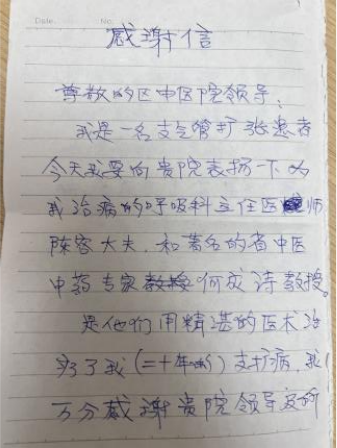 Date. No.
感谢信
尊敬的区中医院领导:
我是一名支气管扩张患者
今天我要向贵院表扬一下为
我治病的呼吸科主任医师
陈容大夫,和著名的省中医
中药专家教授何成诗教授。
是他们用精湛的医术治
好了我(二十年的)支扩病,我
万分感谢贵院领导及所